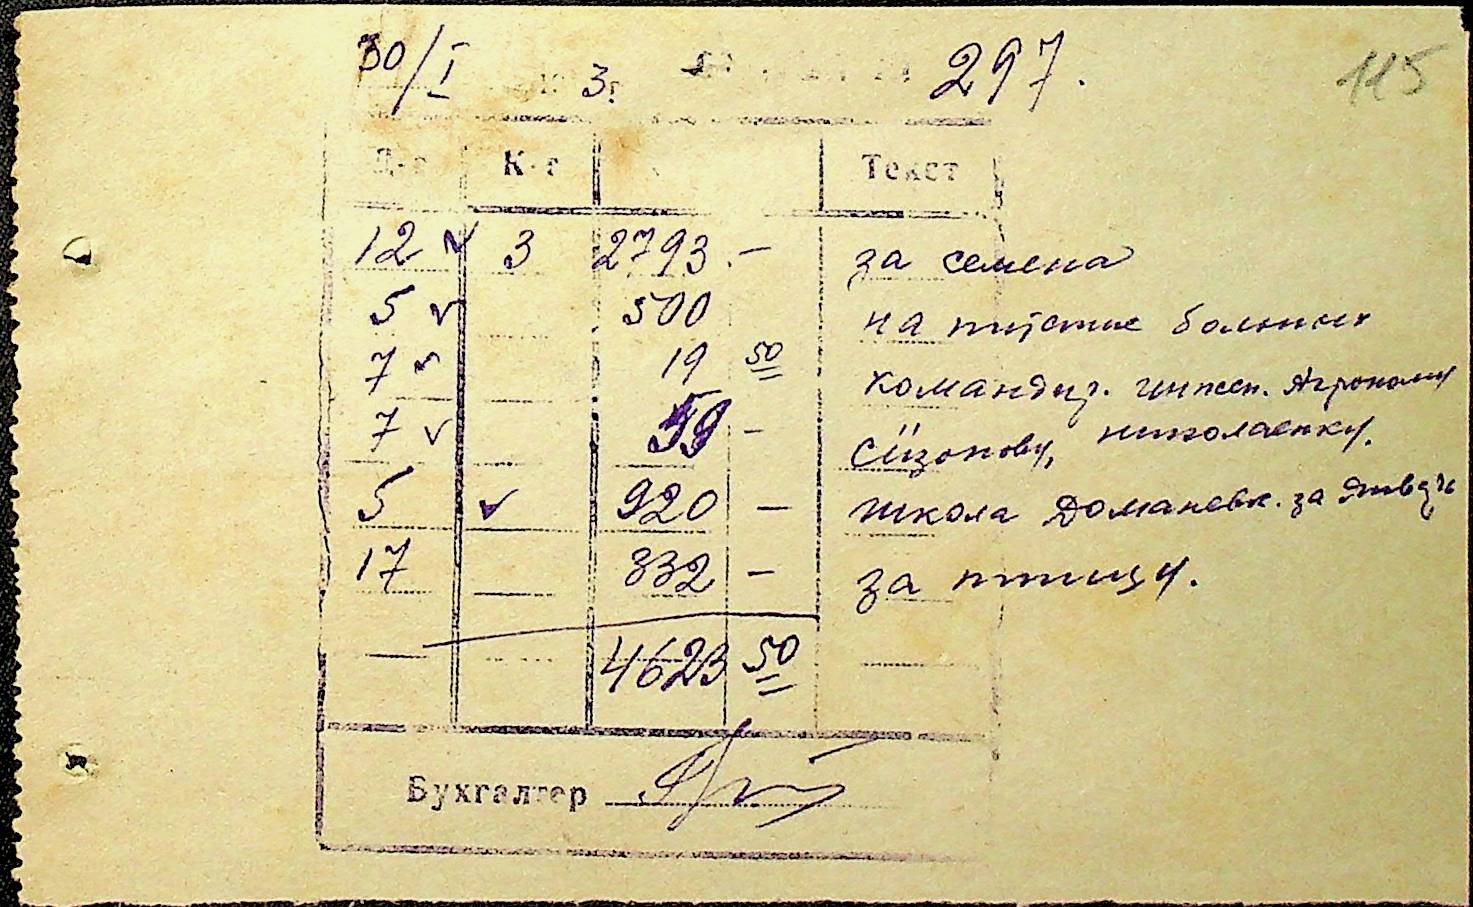 30/I 3г. 297. 115
Д-т К-т Текст
12 ✓ 3 2793.— за семена
5 ✓ 500 на питание больных
7 ✓ 19 50 командир. инжен. Агроному
7 ✓ 59 — Сизонову, Николаенку.
5 ✓ 920 — школа Доманевк. за
17 332 — за птицу.
4623 50
Бухгалтер